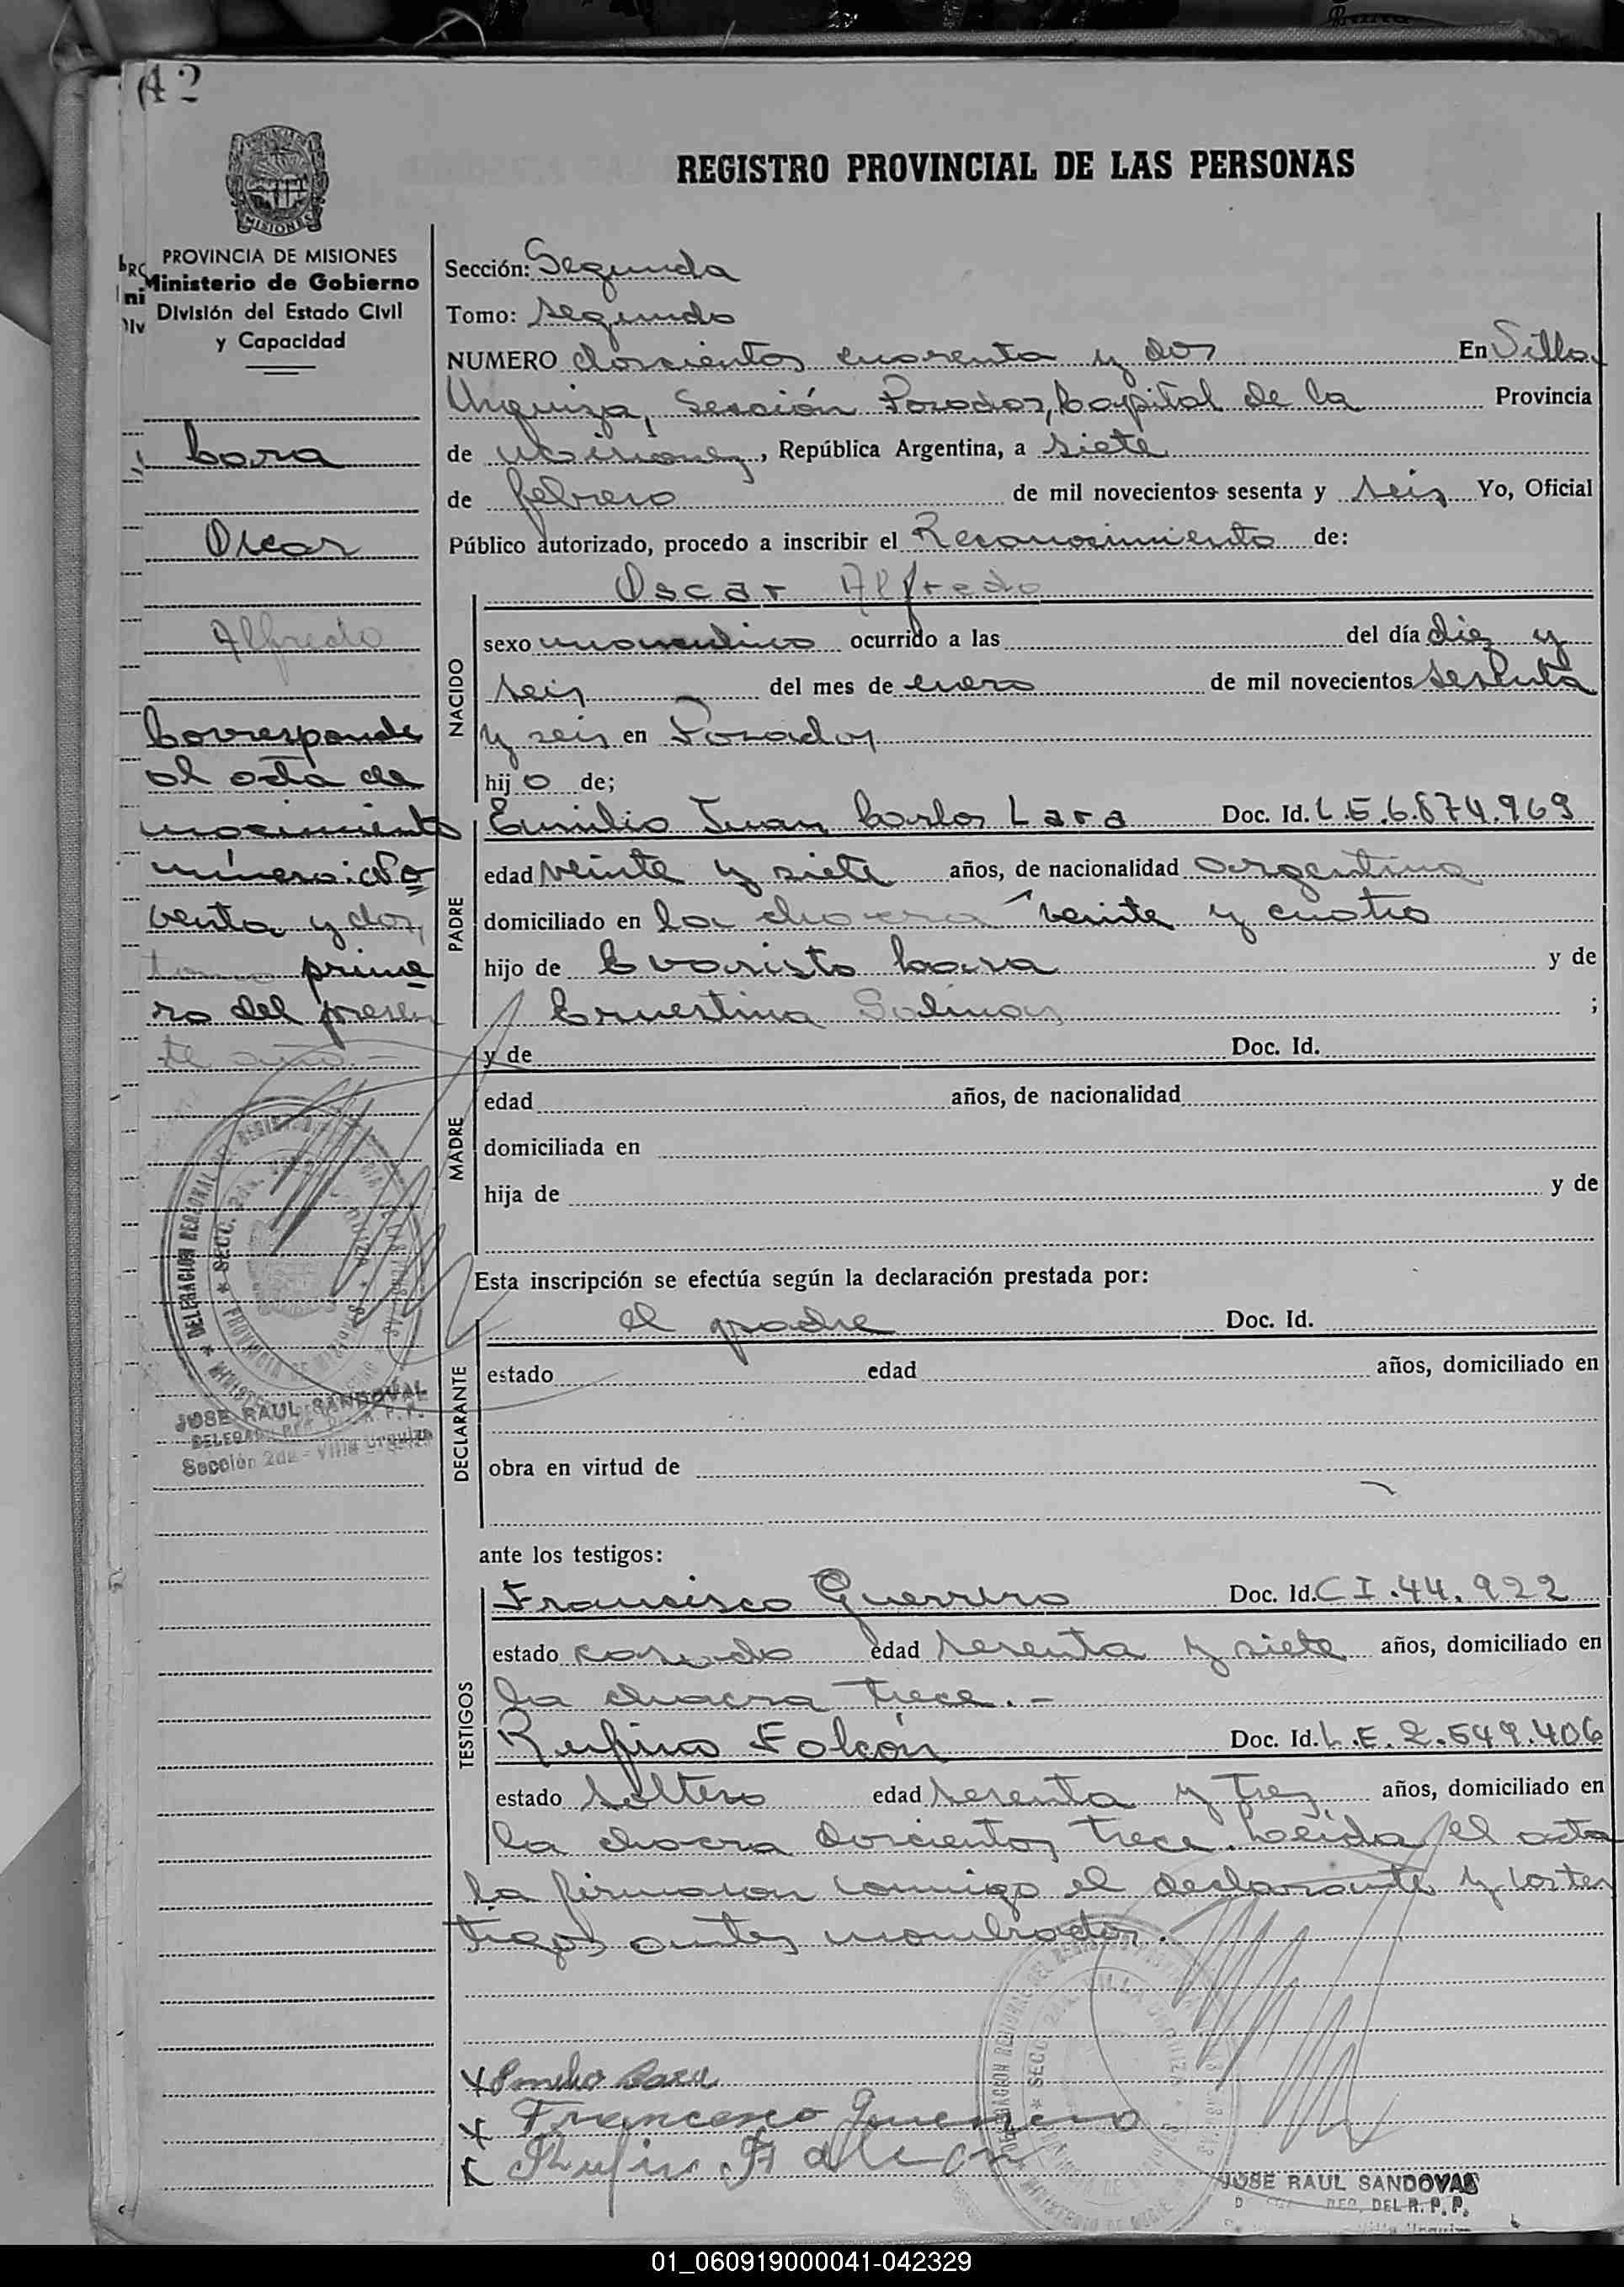 42
REGISTRO PROVINCIAL DE LAS PERSONAS
MISIONES
PROVINCIA DE MISIONES
Ministerio de Gobierno
División del Estado Civil
y Capacidad
Lara
Oscar
Alfredo
Corresponde
al acta de
nacimiento
número: No
venta y dos,
tomo prime
ro del presen
te año.-
JOSE RAUL SANDOVAL
DELEGADO REG. DEL R. P. P.
Sección 2da - Villa Urquiza
Sección: Segunda
Tomo: Segundo
NUMERO doscientos cuarenta y dos En Villa
Urquiza, Sección Posadas, Capital de la Provincia
de Misiones, República Argentina, a siete
de febrero de mil novecientos sesenta y seis Yo, Oficial
Público autorizado, procedo a inscribir el Reconocimiento de:
Oscar Alfredo
NACIDO
sexo masculino ocurrido a las del día diez y
seis del mes de enero de mil novecientos sesenta
y seis en Posadas
hijo de;
PADRE
Emilio Juan Carlos Lara Doc. Id. L.E.6.874.969
edad veinte y siete años, de nacionalidad argentina
domiciliado en la chacra veinte y cuatro
hijo de Evaristo Lara y de
Ernestina Salinas ;
MADRE
y de Doc. Id.
edad años, de nacionalidad
domiciliada en
hija de y de
Esta inscripción se efectúa según la declaración prestada por:
DECLARANTE
el padre Doc. Id.
estado edad años, domiciliado en
obra en virtud de
ante los testigos:
TESTIGOS
Francisco Guerrero Doc. Id. C I.44.922
estado casado edad sesenta y siete años, domiciliado en
la chacra trece.-
Rufino Falcón Doc. Id. L.E.2.549.406
estado soltero edad sesenta y tres años, domiciliado en
la chacra doscientos trece. Leída el acta
la firmaron conmigo el declarante y los tes
tigos antes nombrados.
x Emilio Lara
x Francisco Guerrero
x Rufino Falcon
JOSE RAUL SANDOVAL
REG. DEL R. P. P.
01_060919000041-042329